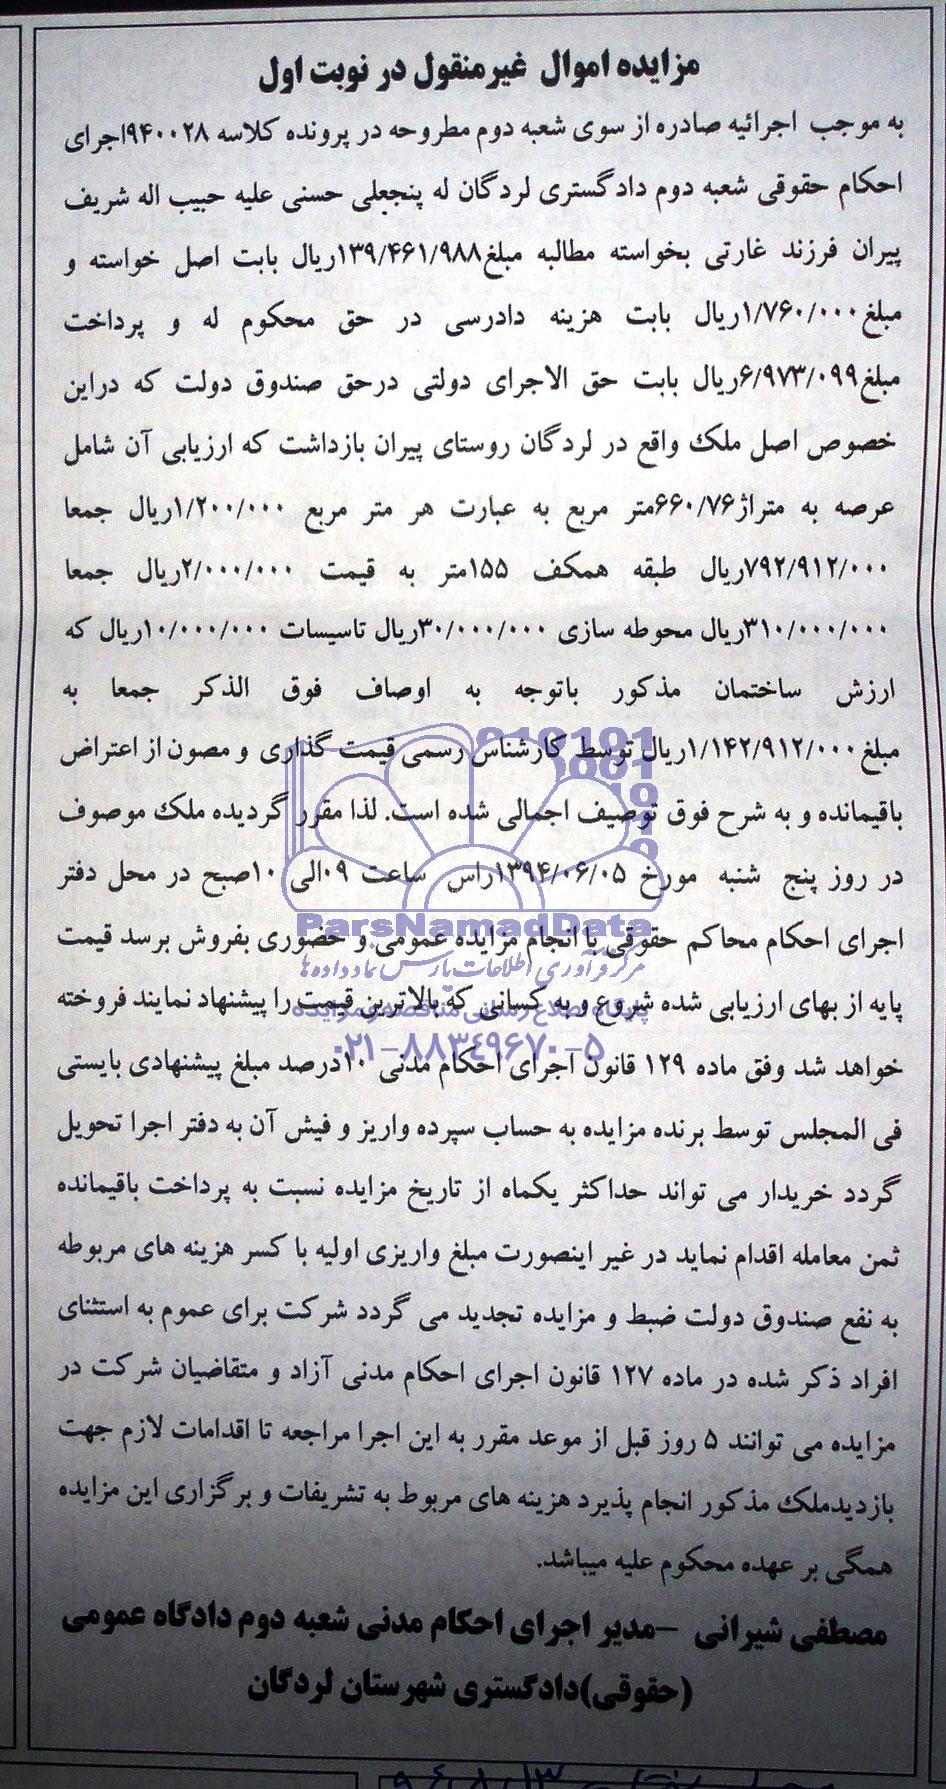 مزایده اموال غیرمنقول در نوبت اول
به موجب اجرائیه صادره از سوی شعبه دوم مطروحه در پرونده کلاسه ۹۴۰۰۲۸اجرای
احکام حقوقی شعبه دوم دادگستری لردگان له پنجعلی حسنی علیه حبیب اله شریف
پیران فرزند غارتی بخواسته مطالبه مبلغ۱۳۹/۴۶۱/۹۸۸ریال بابت اصل خواسته و
مبلغ۱/۷۶۰/۰۰۰ریال بابت هزینه دادرسی در حق محکوم له و پرداخت
مبلغ۶/۹۷۳/۰۹۹ریال بابت حق الاجرای دولتی درحق صندوق دولت که دراین
خصوص اصل ملک واقع در لردگان روستای پیران بازداشت که ارزیابی آن شامل
عرصه به متراژ۶۶۰/۷۶متر مربع به عبارت هر متر مربع ۱/۲۰۰/۰۰۰ریال جمعا
۷۹۲/۹۱۲/۰۰۰ریال طبقه همکف ۱۵۵متر به قیمت ۲/۰۰۰/۰۰۰ریال جمعا
۳۱۰/۰۰۰/۰۰۰ریال محوطه سازی ۳۰/۰۰۰/۰۰۰ریال تاسیسات ۱۰/۰۰۰/۰۰۰ریال که
ارزش ساختمان مذکور باتوجه به اوصاف فوق الذکر جمعا به
مبلغ۱/۱۴۲/۹۱۲/۰۰۰ریال توسط کارشناس رسمی قیمت گذاری و مصون از اعتراض
باقیمانده و به شرح فوق توصیف اجمالی شده است. لذا مقرر گردیده ملک موصوف
در روز پنج شنبه مورخ ۱۳۹۴/۰۶/۰۵راس ساعت ۰۹الی ۱۰صبح در محل دفتر
ParsNamadData
اجرای احکام محاکم حقوقی با انجام مزایده عمومی و حضوری بفروش برسد قیمت
مرکز فرآوری اطلاعات پارس نماد داده ها
پایه از بهای ارزیابی شده شروع و به کسانی که بالاترین قیمت را پیشنهاد نمایند فروخته
پایگاه اطلاع رسانی مناقصه و مزایده
۰۲۱-۸۸۳۴۹۶۷۰-۵
خواهد شد وفق ماده ۱۲۹ قانون اجرای احکام مدنی ۱۰درصد مبلغ پیشنهادی بایستی
فی المجلس توسط برنده مزایده به حساب سپرده واریز و فیش آن به دفتر اجرا تحویل
گردد خریدار می تواند حداکثر یکماه از تاریخ مزایده نسبت به پرداخت باقیمانده
ثمن معامله اقدام نماید در غیر اینصورت مبلغ واریزی اولیه با کسر هزینه های مربوطه
به نفع صندوق دولت ضبط و مزایده تجدید می گردد شرکت برای عموم به استثنای
افراد ذکر شده در ماده ۱۲۷ قانون اجرای احکام مدنی آزاد و متقاضیان شرکت در
مزایده می توانند ۵ روز قبل از موعد مقرر به این اجرا مراجعه تا اقدامات لازم جهت
بازدیدملک مذکور انجام پذیرد هزینه های مربوط به تشریفات و برگزاری این مزایده
همگی بر عهده محکوم علیه میباشد.
مصطفی شیرانی -مدیر اجرای احکام مدنی شعبه دوم دادگاه عمومی
(حقوقی)دادگستری شهرستان لردگان